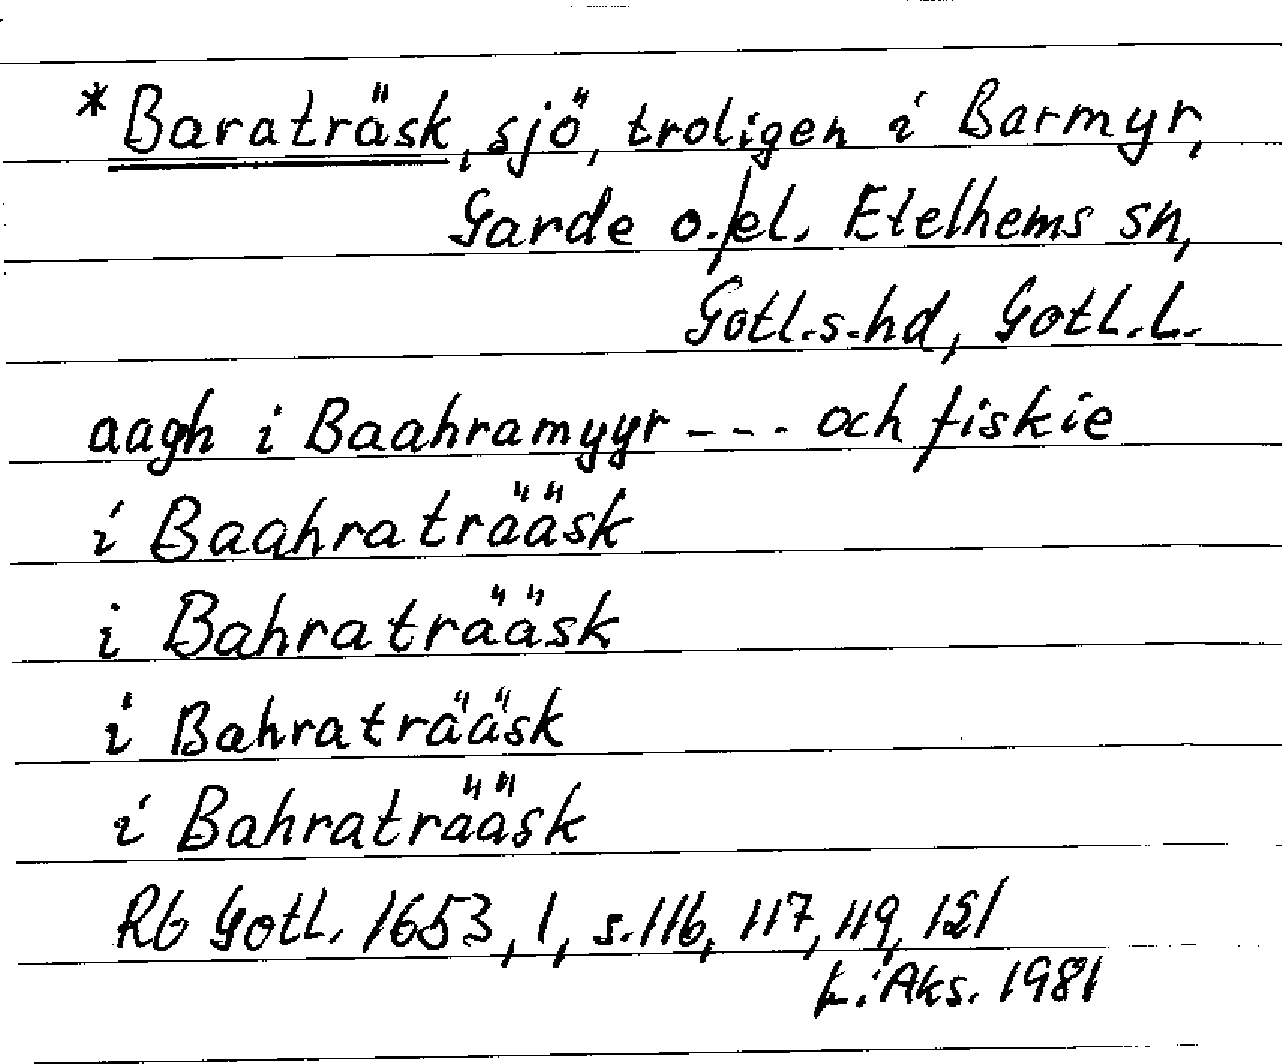 *Baraträsk, sjö, troligen i Barmyr,
Garde o./el. Etelhems sn,
Gotl.s.hd, Gotl.L.
aagh i Baahramyyr --- och fiskie
i Baahraträäsk
i Bahraträäsk
i Bahraträäsk
i Bahraträäsk
Rb Gotl. 1653, 1, s.116, 117, 119, 121
Aks. 1981